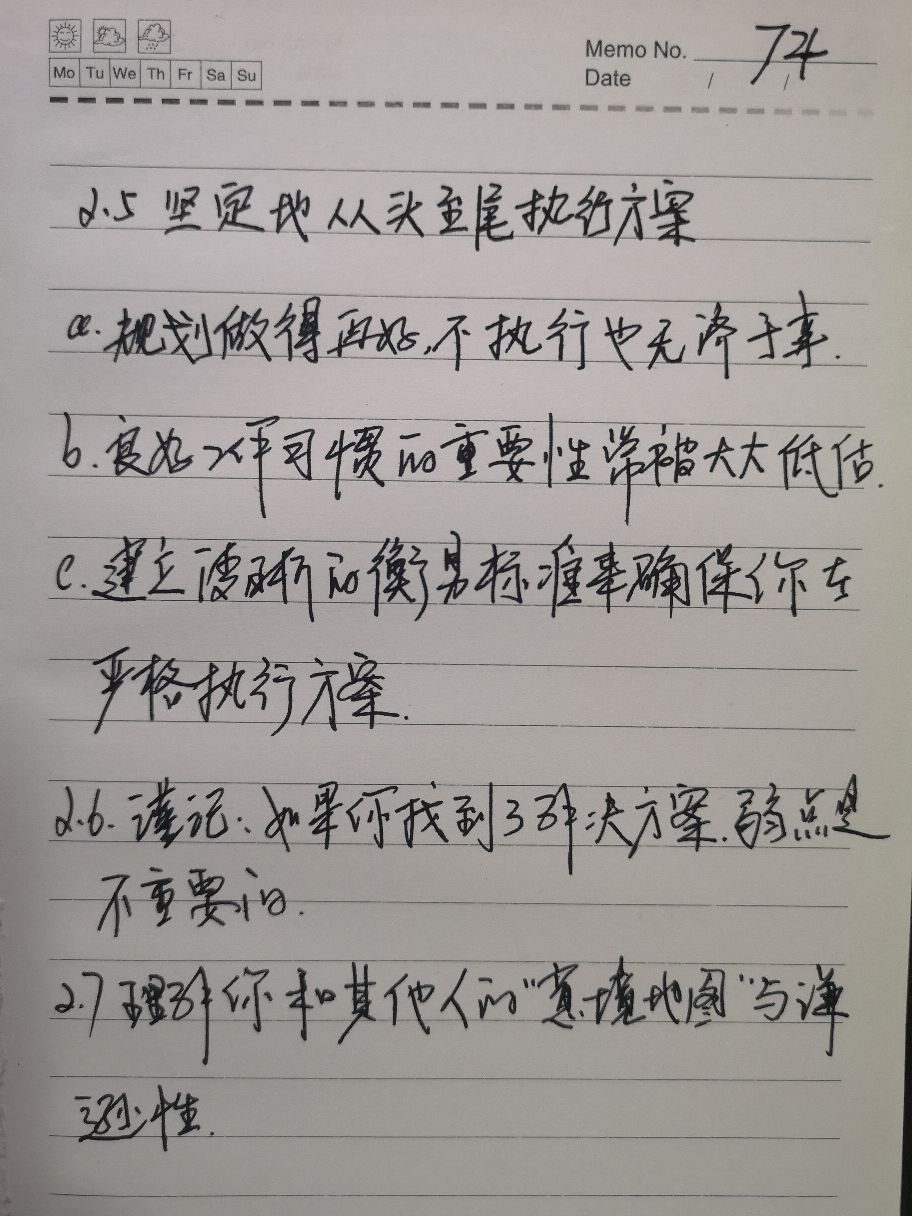 Memo No. 74
Mo Tu We Th Fr Sa Su
Date / /
2.5 坚定地从头至尾执行方案
a. 规划做得再好,不执行也无济于事.
b. 良好工作习惯的重要性常被大大低估.
c. 建立清晰的衡量标准来确保你在
严格执行方案.
2.6. 谨记: 如果你找到了解决方案.弱点是
不重要的.
2.7 理解你和其他人的"意境地图"与谦
逊性.